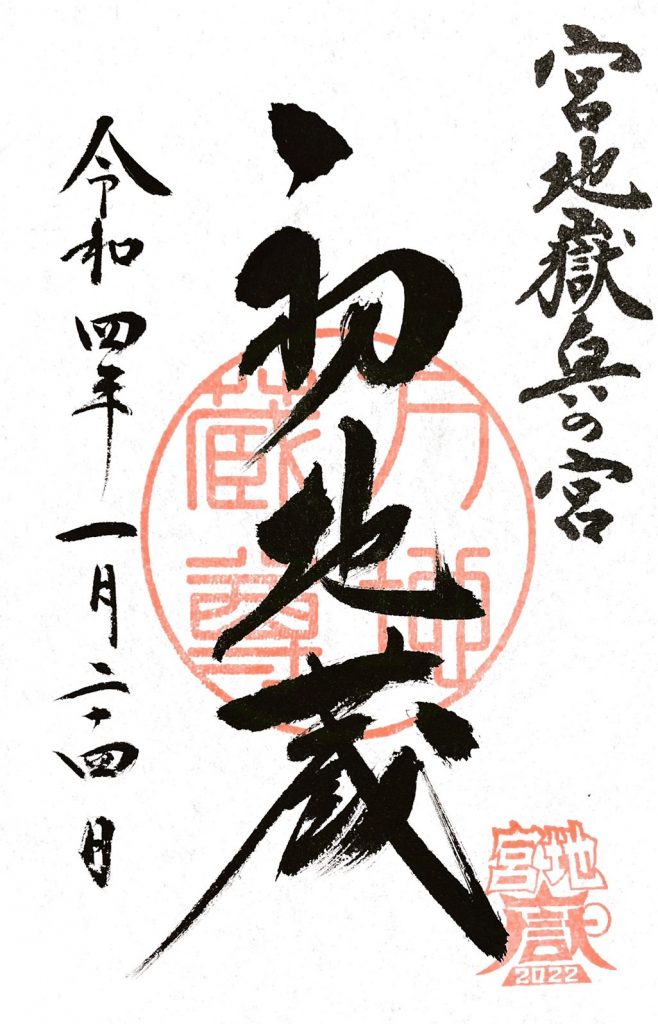 宮地嶽兵の宮
初地蔵
令和四年一月二十四日
蔵尊
宮地嶽
2022